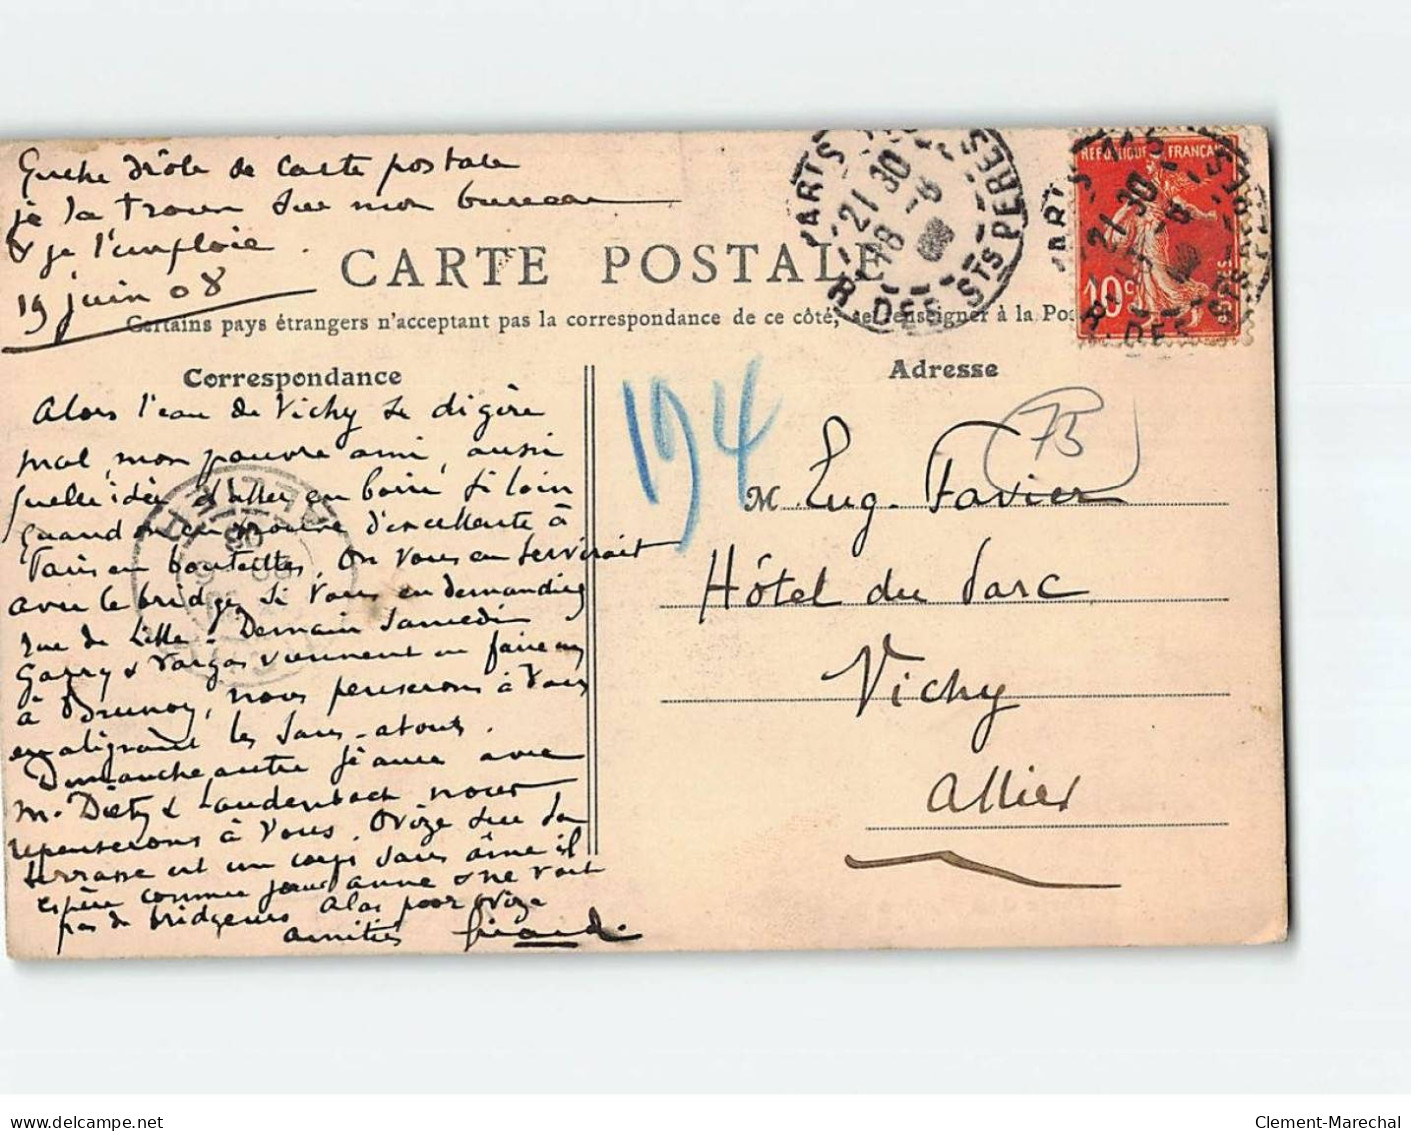 Quelle drôle de Carte postale
je la trouve sur mon bureau
& je l'emploie.
19 juin 08
CARTE POSTALE
Certains pays étrangers n'acceptant pas la correspondance de ce côté, se renseigner à la Po
Correspondance
Alors l'eau de Vichy se digère
mal, mon pauvre ami, aussi
quelle idée d'aller en boire si loin
quand on en trouve d'excellente à
Paris en bouteilles. On vous en servirait
avec le bridge, si vous en demandiez
rue de Lille. Demain Samedi
Garry & Vargas viennent en faire un
à Brunoy, nous penserons à vous
en alignant les sans-atouts.
Dimanche autre séance avec
M. Dietz & Laudenbach nous
repenserons à vous. Ovize sur sa
terrasse est un corps sans âme il
espère comme sœur Anne & ne voit
pas de bridgeurs Alas poor Ovize
amitiés Girard.
Adresse
M Eug. Favier
Hôtel du Parc
Vichy
Allier
194
75
ARTS
21 30
18 -6
R. DES STS PERES
REPUBLIQUE FRANÇAISE
10c
POSTES
ARTS
21 30
R. DES STS PERES
08
delcampe.net
Clement-Marechal